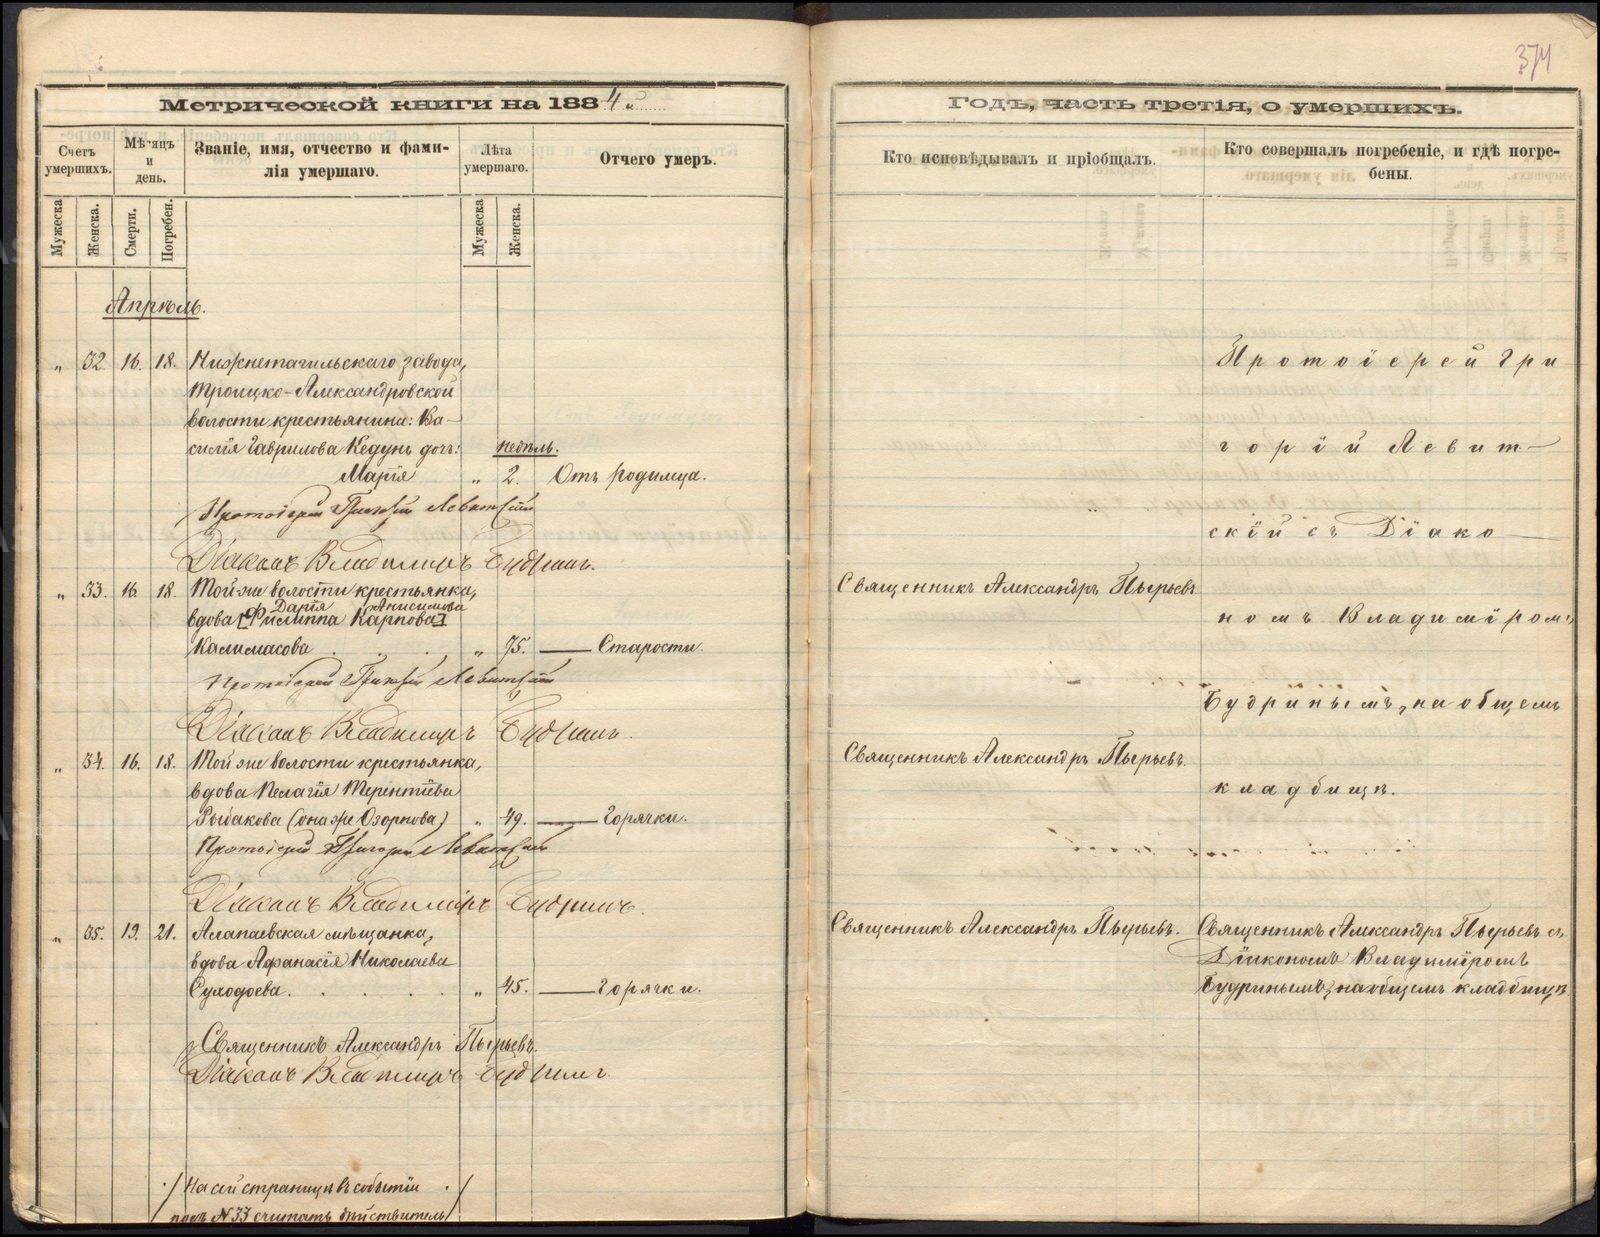 374
Метрической книги на 1884 й
Годъ, часть третія, о умершихъ.
Счетъ умершихъ.
Мѣсяцъ и день.
Званіе, имя, отчество и фами-
лія умершаго.
Лѣта умершаго.
Отчего умеръ.
Кто исповѣдывалъ и пріобщалъ.
Кто совершалъ погребеніе, и гдѣ погре-
бены.
Мужеска
Женска.
Смерти.
Погребен.
Мужеска
Женска.
Апрѣль.
„ 32. 16. 18. Нижнетагильскаго завода,
Троицко-Александровской
волости крестьянина: Ва-
силія Гаврилова Кедунъ дочь: недѣль.
Марія „ 2. Отъ родимца.
Протоіерей Григорій Левитскій
Діаконъ Владимиръ Будринъ.
„ 33. 16. 18. Той-же волости крестьянка,
Дарія Анисимова
вдова [Филиппа Карпова]
Калимасова . . . . „ 75. — Старости.
Протоіерей Григорій Левитскій
Діаконъ Владимиръ Будринъ.
„ 34. 16. 18. Той же волости крестьянка,
вдова Пелагія Терентіева
Рыбакова (она же Озорнова) „ 49. — Горячки.
Протоіерей Григорій Левитскій
Діаконъ Владиміръ Будринъ.
„ 35. 19. 21. Алапаевская мѣщанка,
вдова Афанасія Николаева
Суходоева. . . . . . „ 45. — Горячки.
Священникъ Александръ Пырьевъ.
Діаконъ Владимиръ Будринъ.
На сей страницѣ въ событіи
подъ N 33 считать дѣйствитель
Священникъ Александръ Пырьевъ
Священникъ Александръ Пырьевъ.
Священникъ Александръ Пырьевъ.
Протоіерей Гри
горій Левит-
скій съ Діако
номъ Владиміром:
Будринымъ, на общемъ
кладбищѣ.
Священникъ Александръ Пырьевъ съ
Діакономъ Владиміромъ
Будринымъ, на общемъ кладбищѣ
METRIKI.GASO-URAL.RU